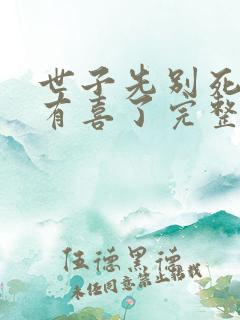 世子先别死
有喜了完整
伍德黑德
未经同意禁止转载